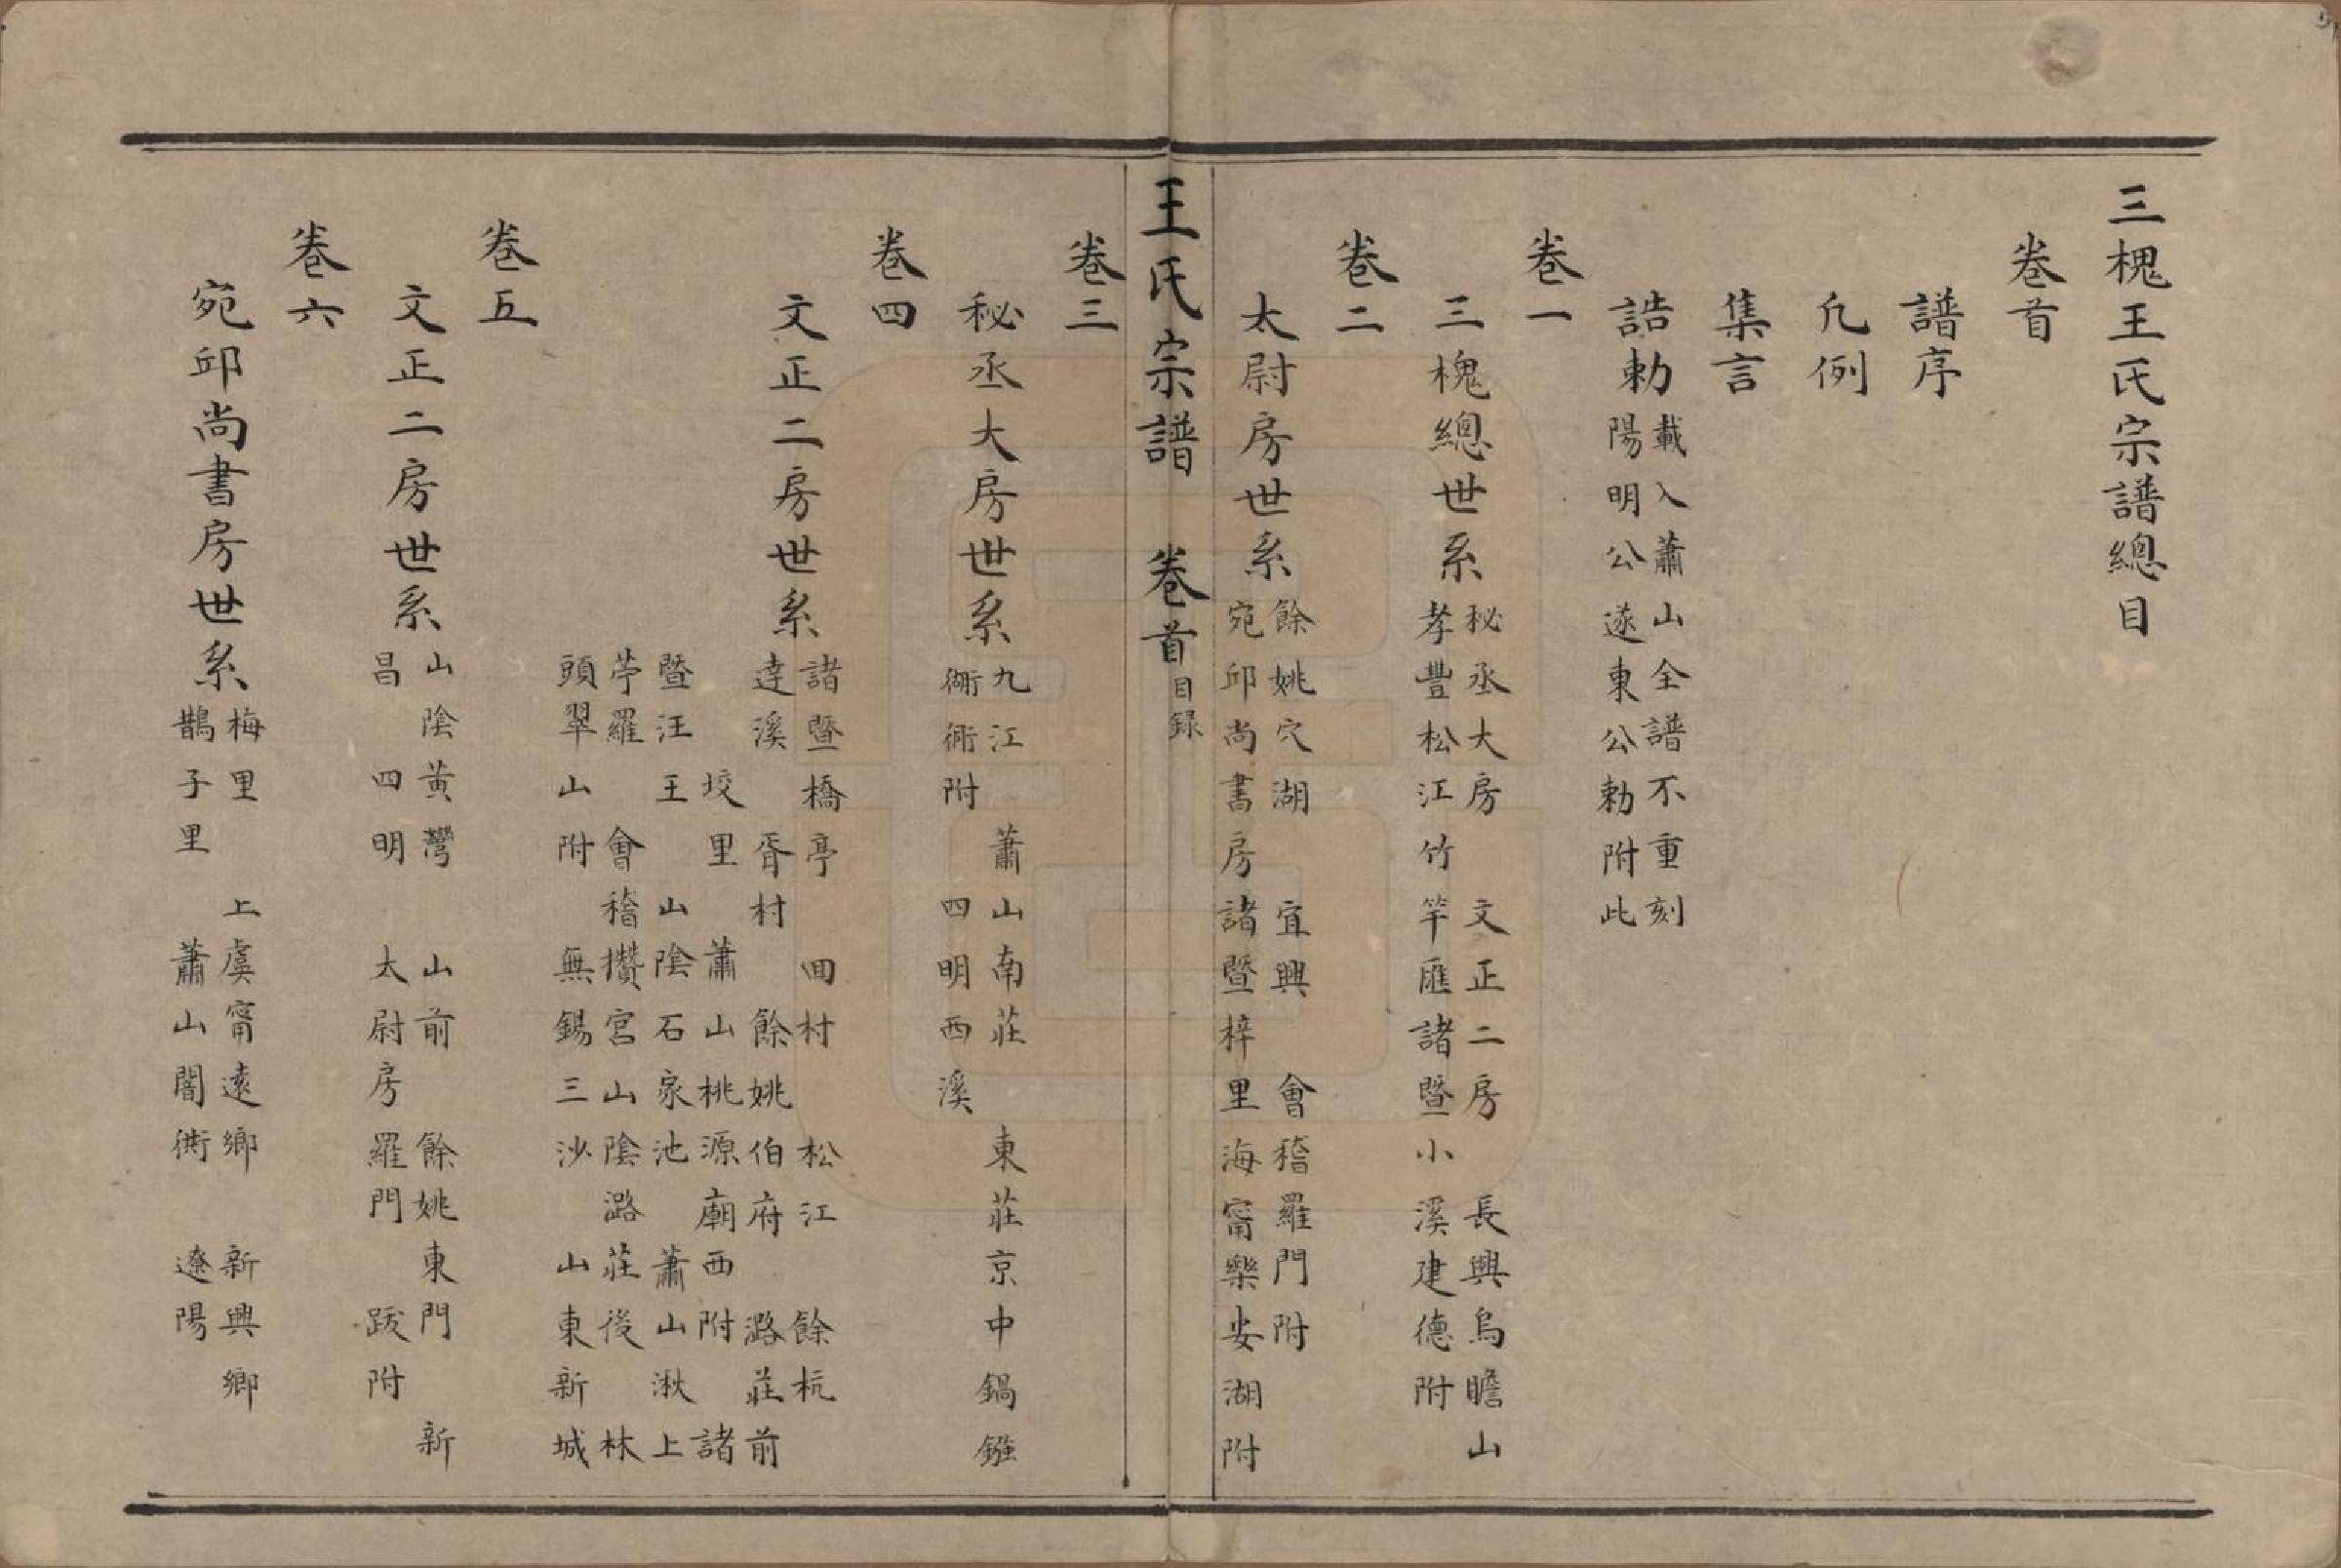 三槐王氏宗譜總目
卷首
譜序
凡例
集言
誥勅
載入蕭山全譜不重刻
陽明公遼東公勅附此
卷一
三槐總世系
秘丞大房 文正二房 長興烏瞻山
孝豐松江竹竿匯諸暨小溪建德附
卷二
太尉房世系
餘姚穴湖 宜興 會稽羅門附
宛邱尚書房諸暨梓里海甯樂安湖附
王氏宗譜 卷首
目録
卷三
秘丞大房世系
九江 蕭山南莊 東莊京中鍋鏹
衚衕附 四明西溪
卷四
文正二房世系
諸暨橋亭 田村 松江 餘杭
達溪 胥村 餘姚伯府 潞莊前
坟里 蕭山桃源廟西附 諸
暨汪王 山陰石家池 蕭山湫上
苧羅 會稽攢宮山陰潞莊後 林
頭翠山附 無錫三沙 山東新城
卷五
文正二房世系
山陰黃灣 山前 餘姚東門 新
昌 四明 太尉房羅門 跋附
卷六
宛邱尚書房世系
梅里 上虞甯遠鄉 新興鄉
鵲子里 蕭山闇衖 遼陽